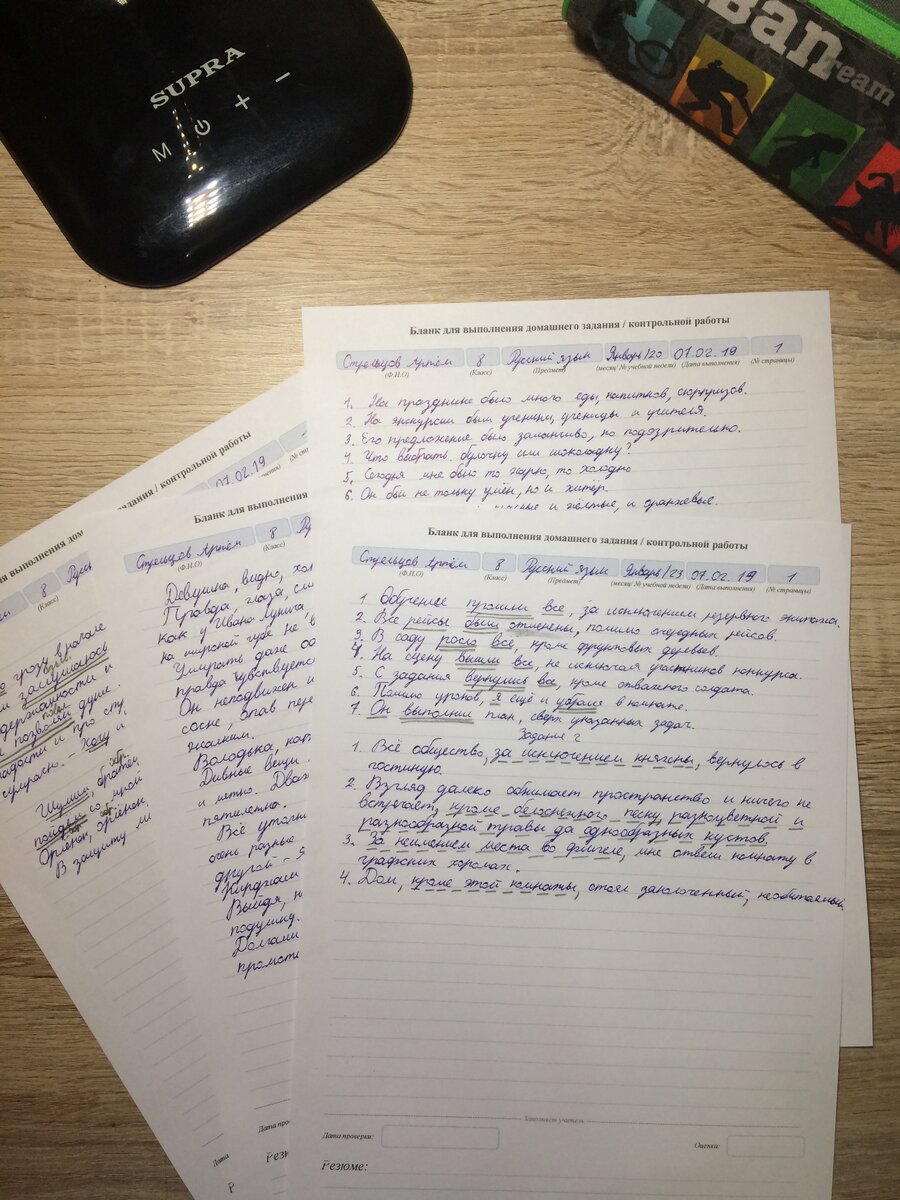 SUPRA
M + −
Ban
ream
Бланк для выполнения домашнего задания / контрольной работы
Стрельцов Артём 8 Русский язык Январь/20 07.02.19 1
(Ф.И.О) (Класс) (Предмет) (месяц/ № учебной недели) (Дата выполнения) (№ страницы)
1. На празднике было много еды, напитков, сюрпризов.
2. На экскурсии были ученики, ученицы и учителя.
3. Его предложение было заманчиво, но подозрительно.
4. Что выбрать булочку или шоколадку?
5. Сегодня мне было то жарко, то холодно
6. Он был не только умён, но и хитёр.
и жёлтые, и оранжевые.
Бланк для выполнения домашнего задания / контрольной работы
Стрельцов Артём 8 Русский язык Январь/23 07.02.19 1
(Ф.И.О) (Класс) (Предмет) (месяц/ № учебной недели) (Дата выполнения) (№ страницы)
1. Обучение прошли все, за исключением резервного экипажа.
2. Все рейсы были отменены, помимо очередных рейсов.
3. В саду росло всё, кроме фруктовых деревьев.
4. На сцену вышли все, не исключая участников конкурса.
5. С задания вернулись все, кроме отважного солдата.
6. Помимо уроков, я ещё и убрался в комнате.
7. Он выполнил план, сверх указанных задач.
Задание 2
1. Всё общество, за исключением княгини, вернулось в
гостиную.
2. Взгляд далеко обнимает пространство и ничего не
встречает, кроме белоснежного песку, разноцветной и
разнообразной травы да однообразных кустов.
3. За неимением места во флигеле, мне отвели комнату в
графских хоромах.
4. Дом, кроме этой комнаты, стоял заколоченный, необитаемый.
Заполняет учитель
Дата проверки: Оценка:
Резюме:
Бланк для выполнения
Стрельцов Артём 8
(Ф.И.О) (Класс)
Девушка, видно, хол
Правда, глаза
как у Ивана
на широкой губе не
Умирать даже
правда чувствуется
Он неподвижен и
сосне,
жалким.
Володька,
Дивные вещи
и метко. Два
пятилетка.
Всё
очень разные
другой – Я
Выйдя, н
подушку.
Долгами
дания / контрольной работы
07.02.19
выполнения)
ля выполнения дом
8 Русск
(Класс)
грозу вначале
позволял душе.
радости и про
сумрачно. – Хожу и
Шумит,
пойдём со мной
Орлёнок, орлёнок,
В защиту
Дата